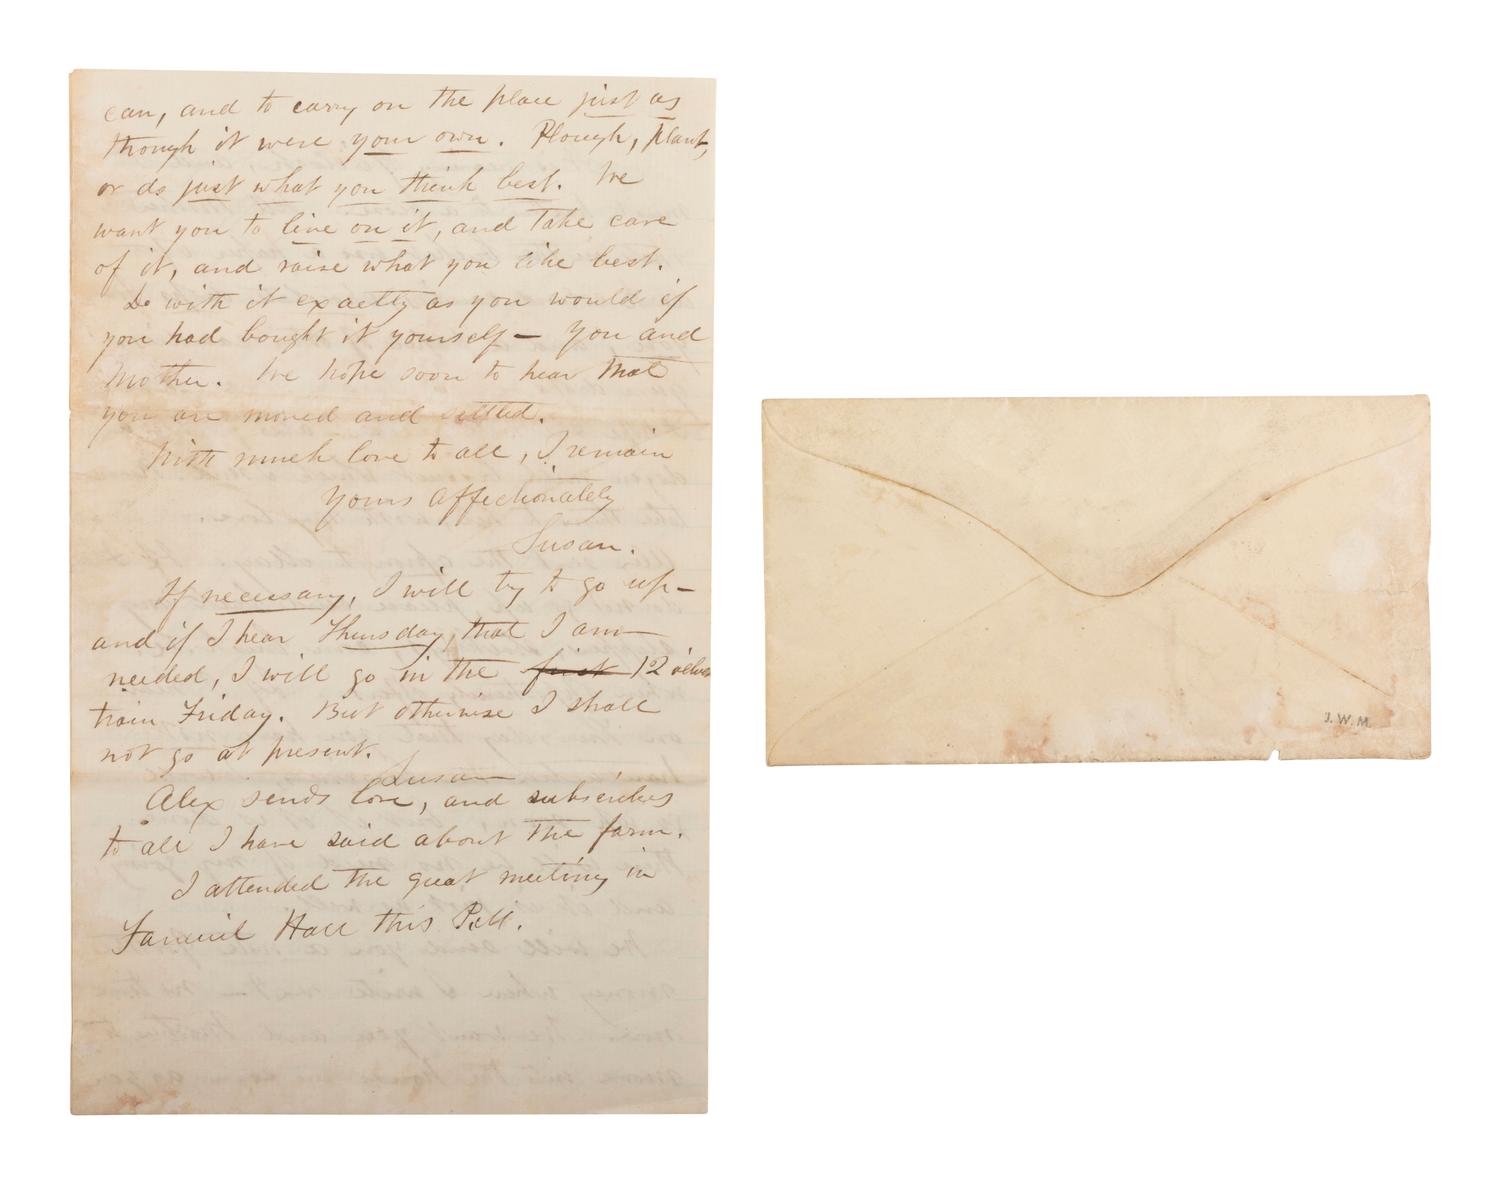 can, and to carry on the place just as
though it were your own. Plough, plant,
or do just what you think best. We
want you to live on it, and take care
of it, and raise what you like best.
Do with it exactly as you would if
you had bought it yourself – you and
Mother. We hope soon to hear that
you are moved and settled.
With much love to all, I remain
yours affectionately
Susan.
If necessary, I will try to go up –
and if I hear Thursday, that I am
needed, I will go in the first 12 o'clock
train Friday. But otherwise I shall
not go at present.
Susan
Alex sends love, and subscribes
to all I have said about the farm.
I attended the great meeting in
Faneuil Hall this P.M.
J. W. M.